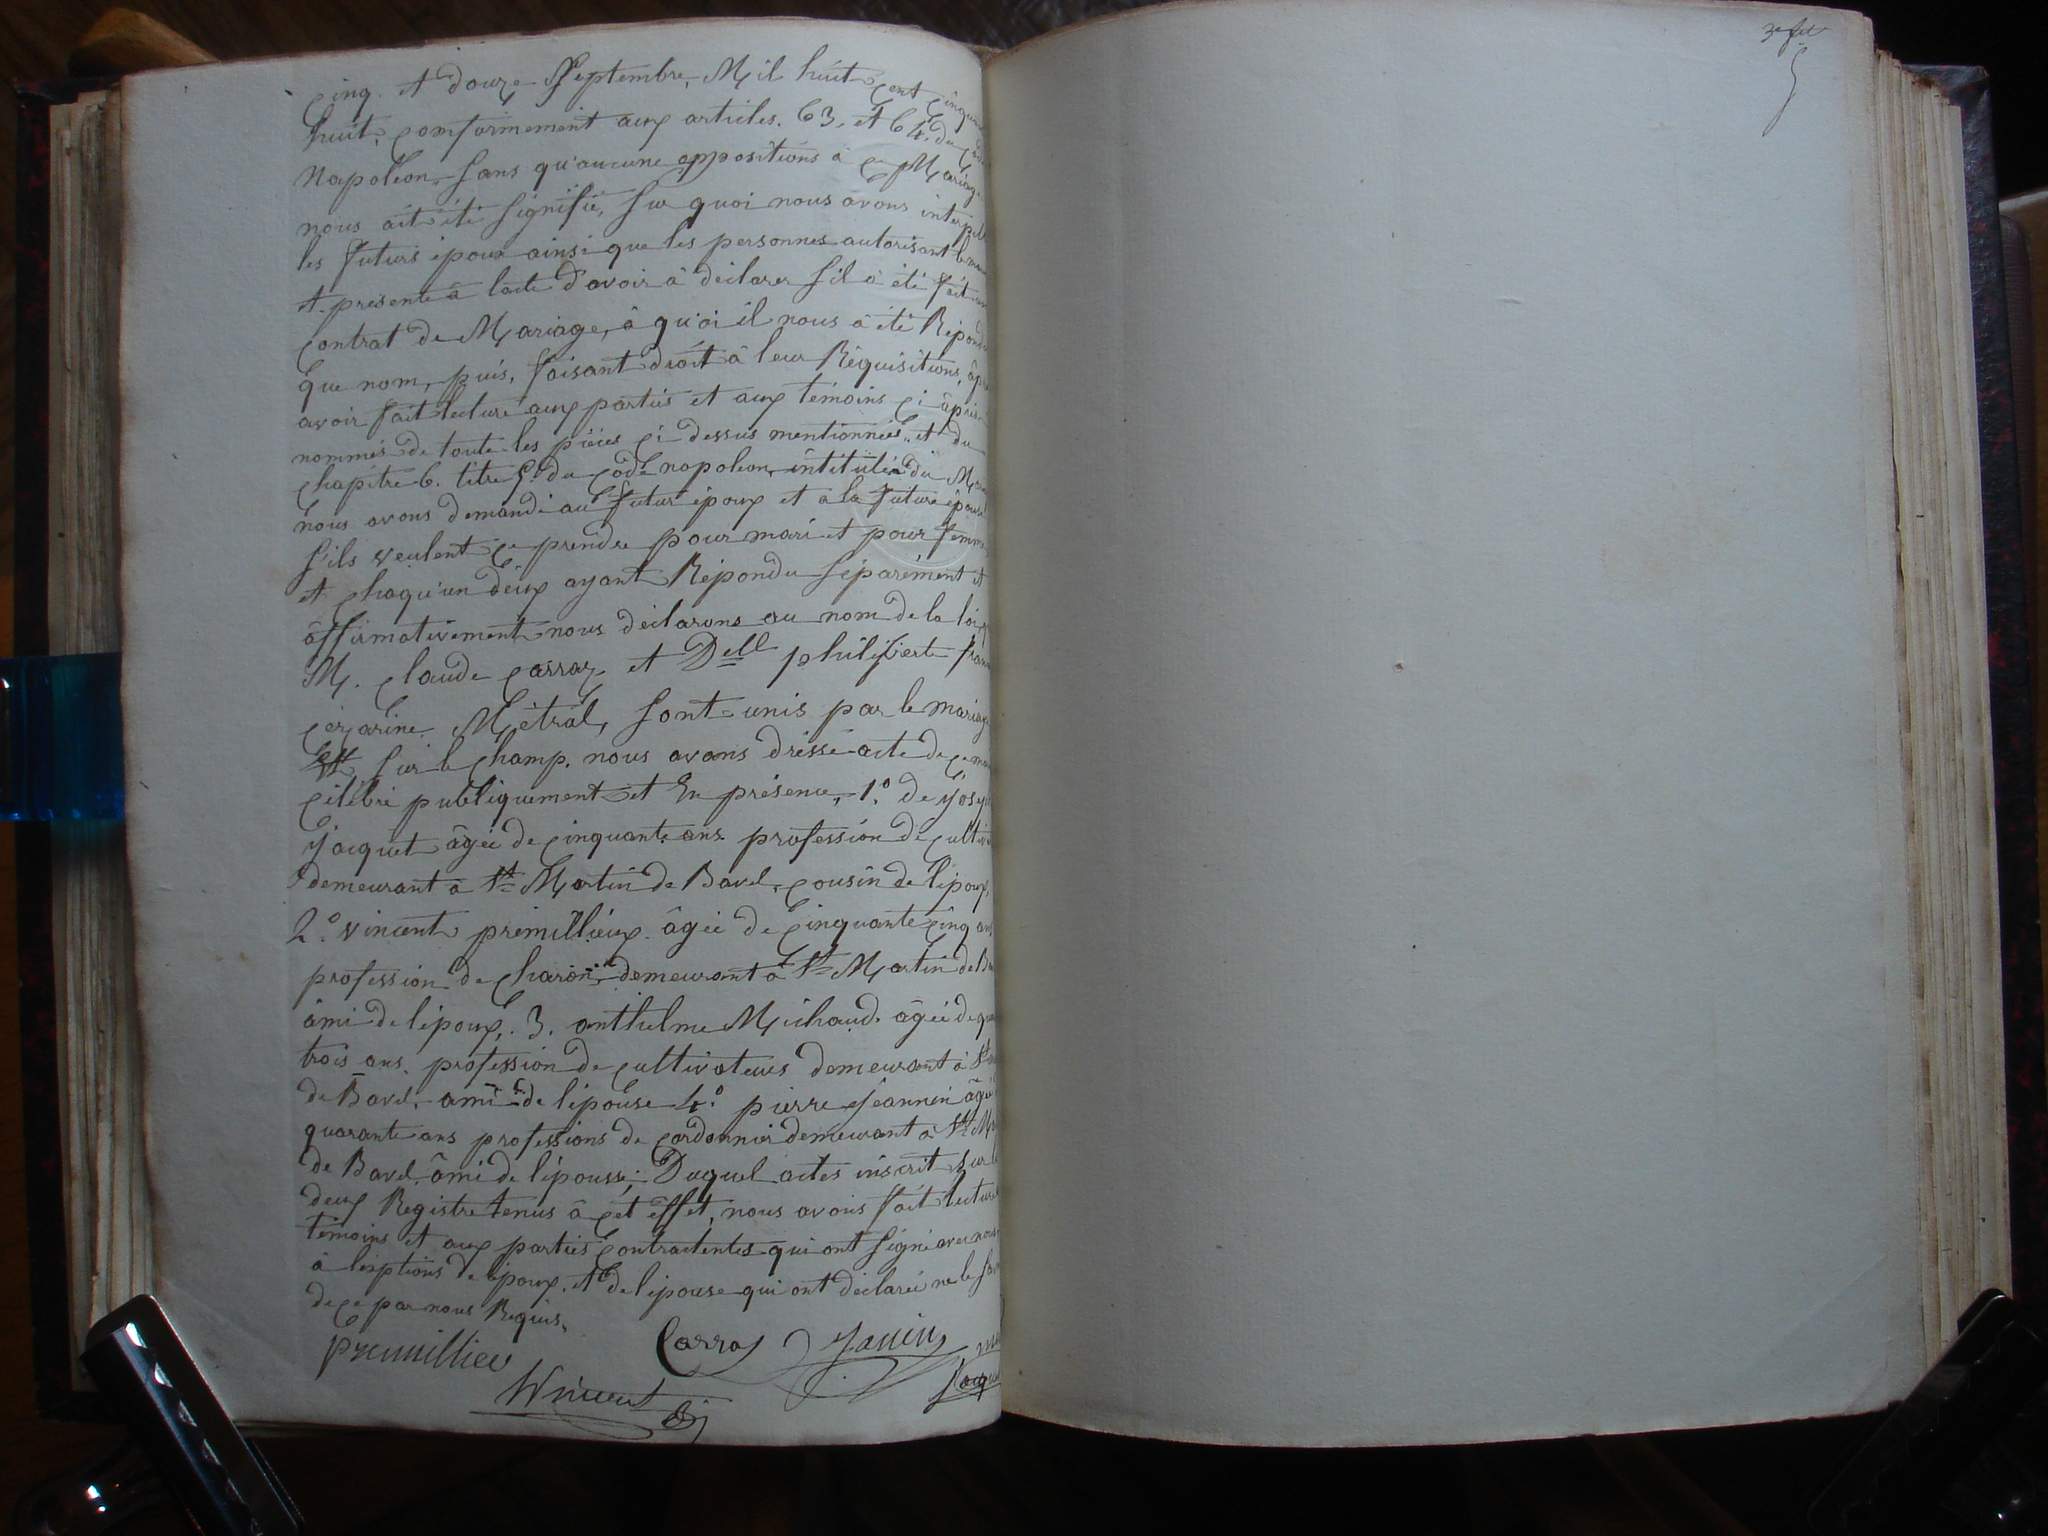 cinq. et douze Septembre, Mil huit cent
huit, conformement aux articles. 63. et 64. du
Napoléon, sans qu'aucune oppositions à ce Mariage
nous ait été signifié, sur quoi nous avons
les futurs époux ainsi que les personnes autorisant le
et présente à l'acte d'avoir à déclarer s'il à été fait
contrat de Mariage, à qu'oi il nous à été Répondu
que nom, puis, faisant droit à leur Réquisitions,
avoir fait lecture aux parties et aux témoins ci après
nommés de toute les pièces ci dessus mentionnées. et du
chapitre 6. titre 5. du Code napoléon, intitulé du
nous avons demandé au futur époux et à la future épouse
s'ils veulent ce prendre pour mari et pour femme
et chaqu'un deux ayant Répondu séparément et
affirmativement nous déclarons au nom de la loi
M. claude carraz et Delle philiberte
cézarine Métral, sont unis par le mariage
Et sur le champ. nous avons dressé acte de ce
célébré publiquement et En présence, 1.° de
jacquet âgée de cinquante ans profession de
demeurant à St Martin de Bavel, cousin de l'époux,
2.° vincent prémillieux âgée de cinquante cinq ans
profession de charon demeurant à St Martin de
âmi de l'époux. 3. anthelme Michaud âgée de
trois ans. profession de cultivateurs demeurant à St
de Bavel, ami de l'épouse 4.° pierre jeannin âgée
quarante ans professions de cordonnier demeurant à St
de Bavel âmi de l'épousse; Duquel actes inscrit sur
deux Registre tenus à cét éffet, nous avons fait lecture
témoins et aux parties contractentes qui ont signé avec nous
à l'exptions de l'époux. et de l'épouse qui ont déclarée ne le
de ce par nous Requis,
premillieu Carraz Janin
Vincent